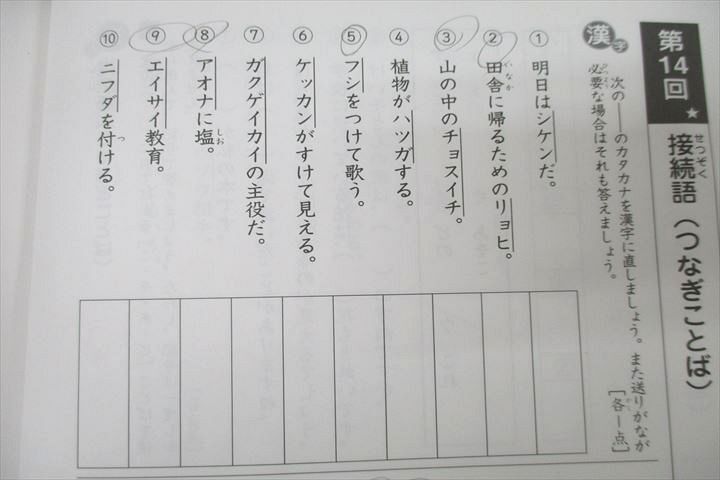 第14回
★
接続語（つなぎことば）
せつぞく
漢字
次の――のカタカナを漢字に直しましょう。また送りがなが
必要な場合はそれも答えましょう。
［各一点］
① 明日はシケンだ。
② 田舎に帰るためのリョヒ。
いなか
③ 山の中のチョスイチ。
④ 植物がハツガする。
⑤ フシをつけて歌う。
⑥ ケッカンがすけて見える。
⑦ ガクゲイカイの主役だ。
⑧ アオナに塩。
しお
⑨ エイサイ教育。
⑩ ニフダを付ける。
つ